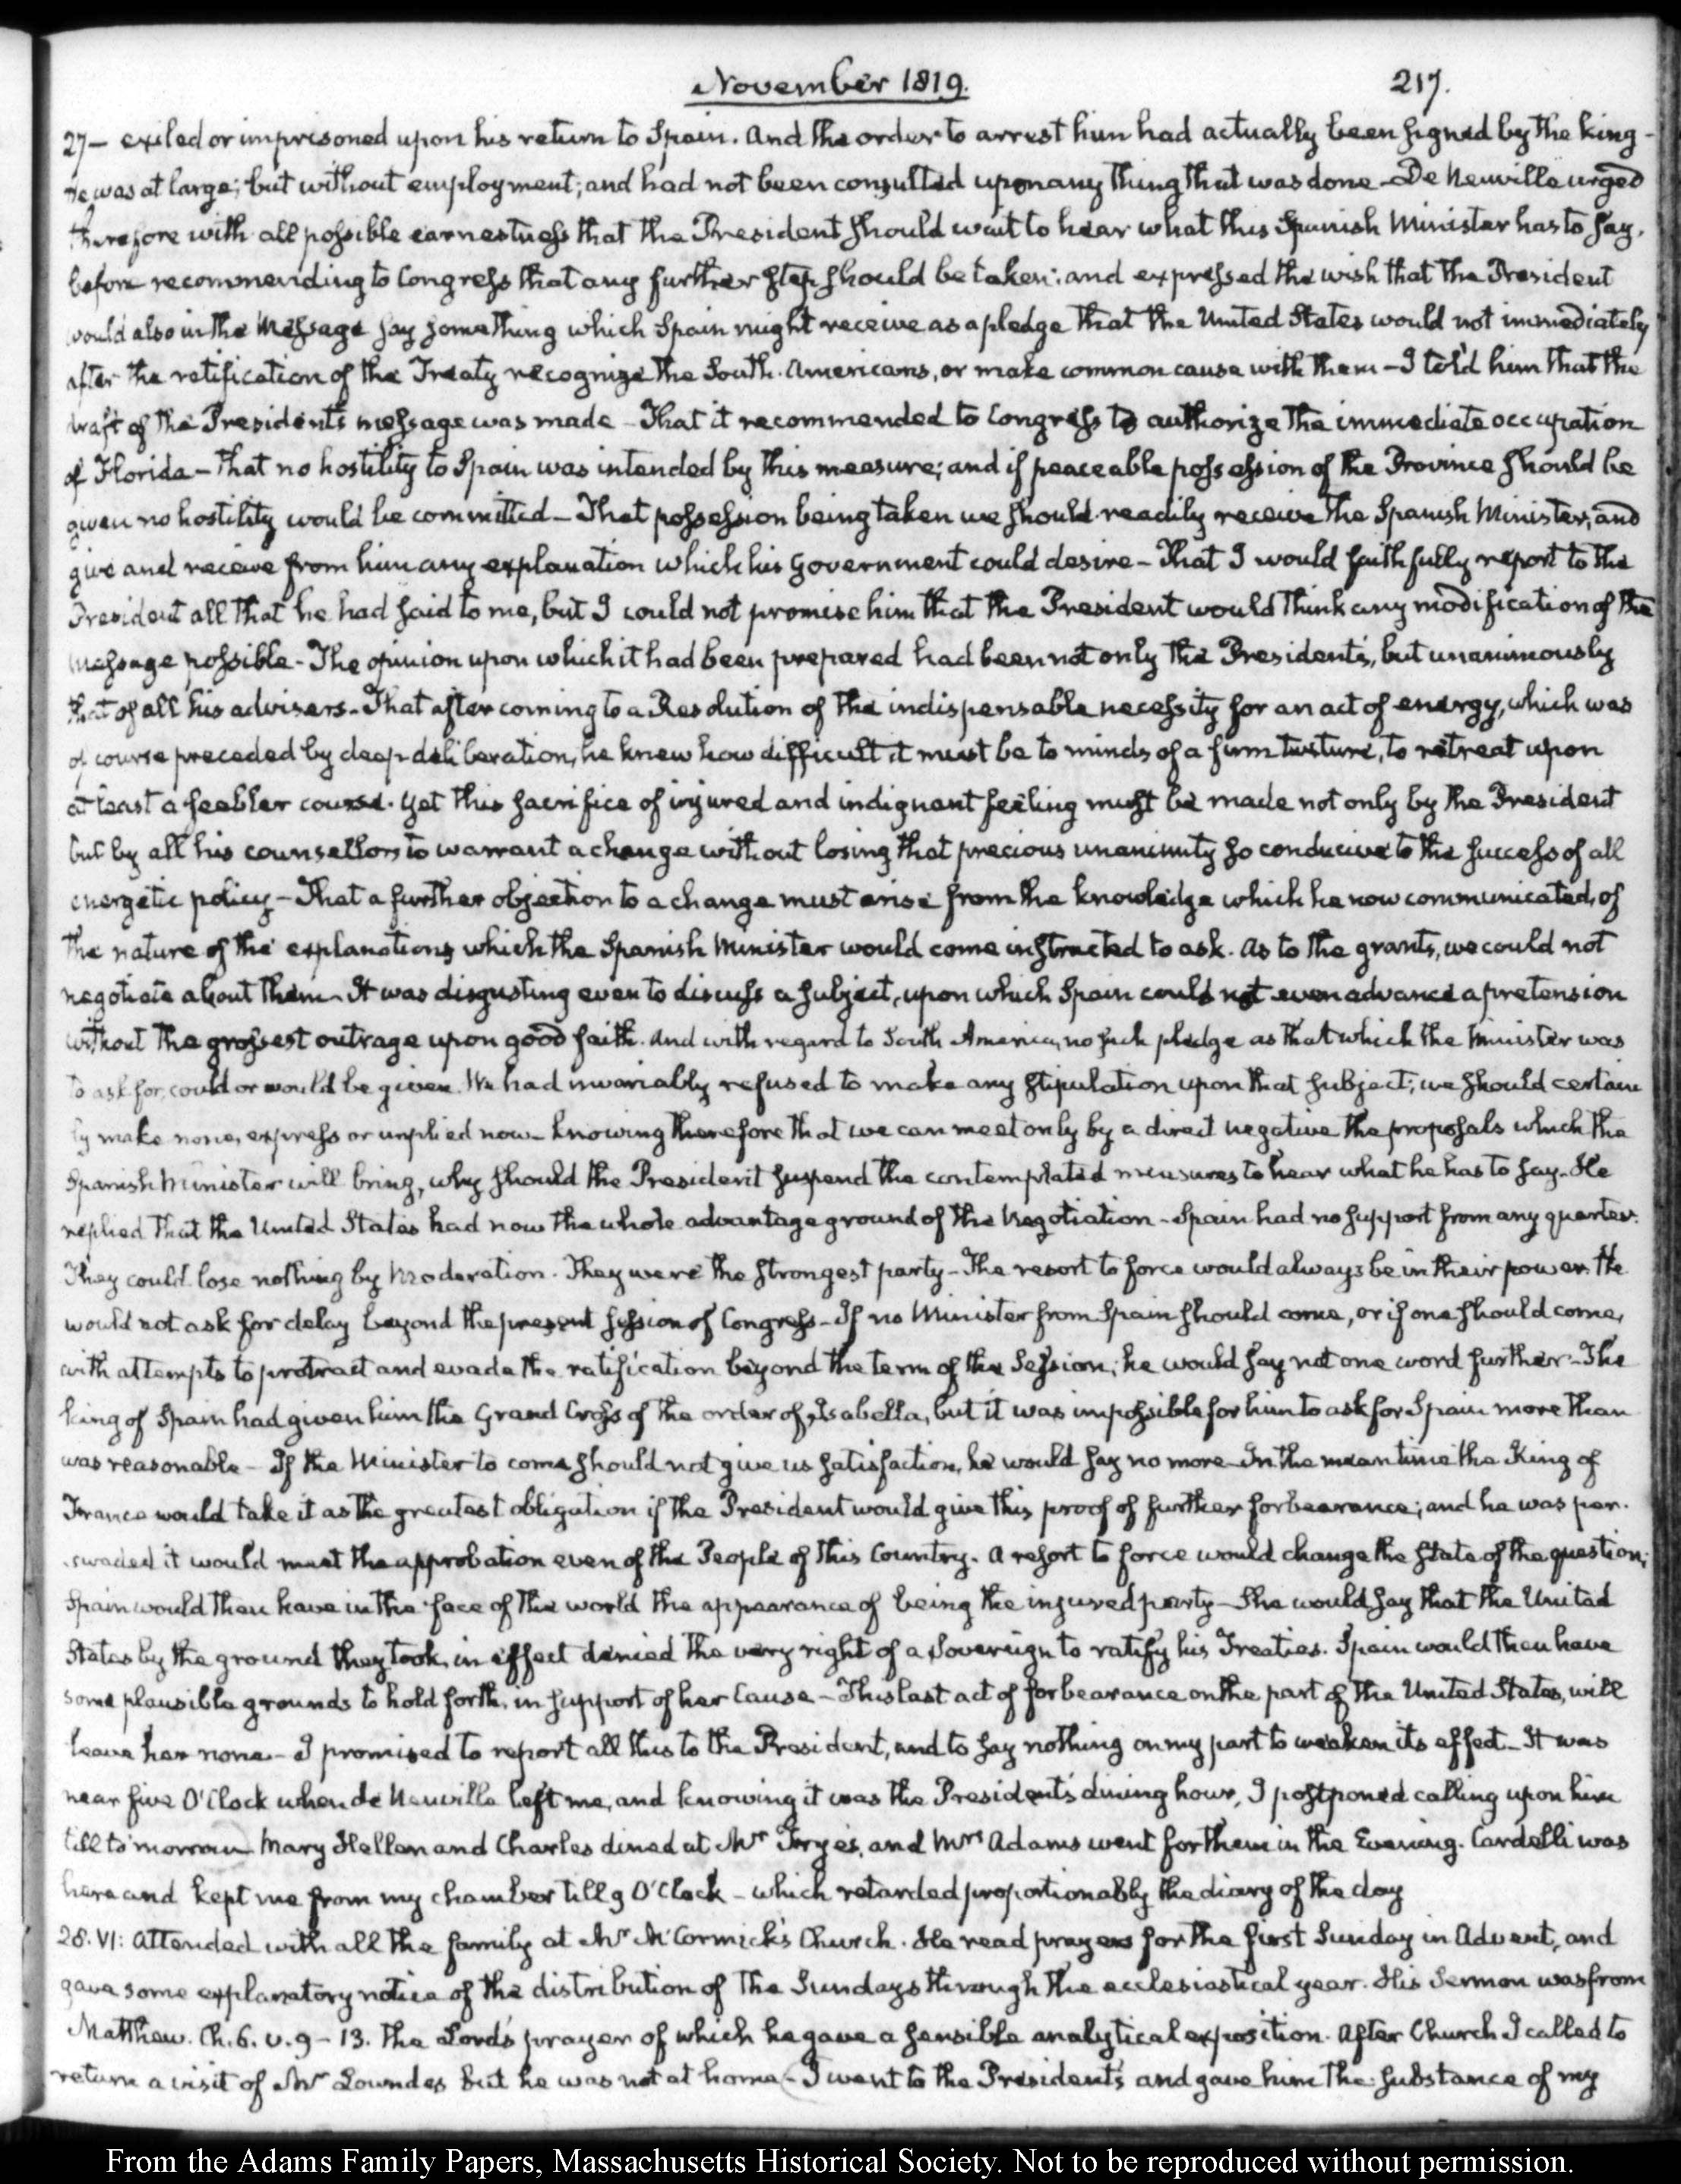 November 1819.
217.
27— exiled or imprisoned upon his return to Spain. And the order to arrest him had actually been signed by the king—
He was at large; but without employment; and had not been consulted upon any thing that was done—De Neuville urged
therefore with all possible earnestness that the President should wait to hear what this Spanish Minister has to say,
before recommending to Congress that any further step should be taken: and expressed the wish that the President
would also in the Message say something which Spain might receive as a pledge that the United States would not immediately
after the ratification of the Treaty recognize the South-Americans, or make common cause with them—I told him that the
draft of the President's message was made—That it recommended to Congress to authorize the immediate occupation
of Florida—that no hostility to Spain was intended by this measure; and if peaceable possession of the Province should be
given no hostility would be committed—That possession being taken we should readily receive the Spanish Minister, and
give and receive from him any explanation which his Government could desire—That I would faithfully report to the
President all that he had said to me, but I could not promise him that the President would think any modification of the
message possible—The opinion upon which it had been prepared had been not only the President's, but unanimously
that of all his advisers—That after coming to a Resolution of the indispensable necessity for an act of energy, which was
of course preceded by deep deliberation, he knew how difficult it must be to minds of a firm texture, to retreat upon
at least a feebler course. Yet this sacrifice of injured and indignant feeling must be made not only by the President
but by all his counsellors to warrant a change without losing that precious unanimity so conducive to the success of all
energetic policy—That a further objection to a change must arise from the knowledge which he now communicated, of
the nature of the explanations which the Spanish Minister would come instructed to ask. As to the grants, we could not
negotiate about them—It was disgusting even to discuss a subject, upon which Spain could not even advance a pretension
without the grossest outrage upon good faith. And with regard to South America, no such pledge as that which the Minister was
to ask for, could or would be given. We had invariably refused to make any stipulation upon that subject; we should certain
ly make none, express or implied now—knowing therefore that we can meet only by a direct negative the proposals which the
Spanish Minister will bring, why should the President suspend the contemplated measures to hear what he has to say—He
replied that the United States had now the whole advantage ground of the Negotiation—Spain had no support from any quarter.
They could lose nothing by Moderation. They were the strongest party—The resort to force would always be in their power. He
would not ask for delay beyond the present session of Congress—If no Minister from Spain should come, or if one should come,
with attempts to protract and evade the ratification beyond the term of the Session; he would say not one word further—The
king of Spain had given him the Grand Cross of the order of Isabella, but it was impossible for him to ask for Spain more than
was reasonable—If the Minister to come should not give us satisfaction, he would say no more—In the mean time the King of
France would take it as the greatest obligation if the President would give this proof of further forbearance; and he was per-
swaded it would meet the approbation even of the People of this Country. A resort to force would change the state of the question;
Spain would then have in the face of the world the appearance of being the injured party—She would say that the United
States by the ground they took, in effect denied the very right of a Sovereign to ratify his Treaties. Spain would then have
some plausible grounds to hold forth, in support of her Cause—This last act of forbearance on the part of the United States, will
leave her none—I promised to report all this to the President, and to say nothing on my part to weaken its effect—It was
near five O'Clock when de Neuville left me, and knowing it was the President's dining hour, I postponed calling upon him
till to morrow—Mary Hellen and Charles dined at Mr Frye's, and Mrs Adams went for them in the Evening. Cardelli was
here and kept me from my chamber till 9 O'Clock—which retarded proportionably the diary of the day
28. VI: Attended with all the family at Mr McCormick's Church. He read prayers for the first Sunday in Advent, and
gave some explanatory notice of the distribution of the Sundays through the ecclesiastical year. His Sermon was from
Matthew. Ch. 6. v. 9–13. The Lord's prayer of which he gave a sensible analytical exposition. After Church I called to
return a visit of Mr Lowndes but he was not at home—I went to the President's and gave him the substance of my
From the Adams Family Papers, Massachusetts Historical Society. Not to be reproduced without permission.